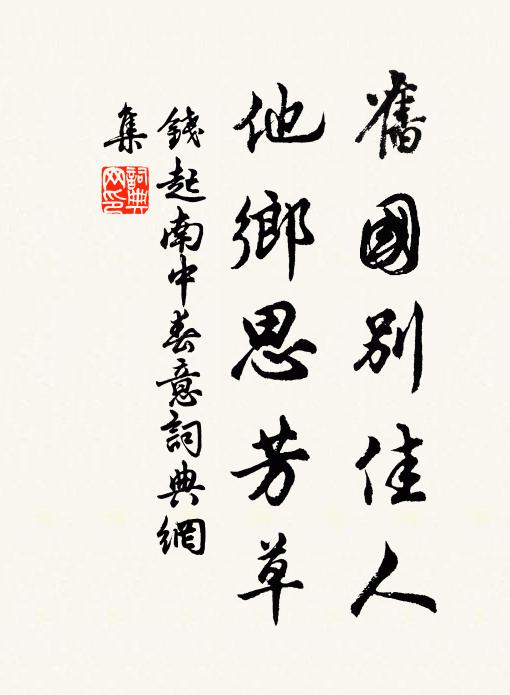 舊國別佳人
他鄉思芳草
錢起南中春意詞典網
集
詞典網印